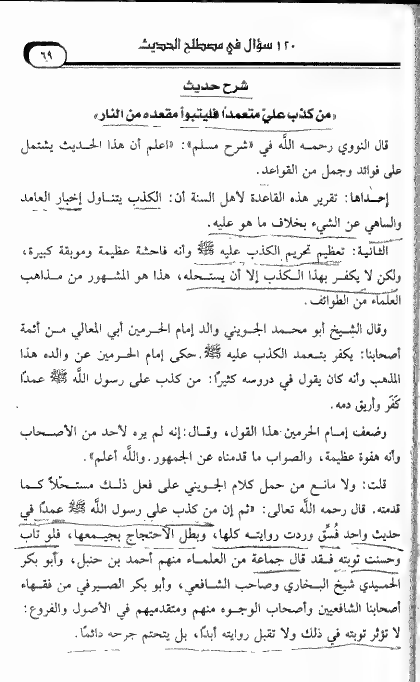 ١٢٠ سؤال في مصطلح الحديث
٦٩
شرح حديث
«من كذب عليّ متعمدًا فليتبوأ مقعده من النار»
قال النووي رحمه اللَّه في «شرح مسلم»: «اعلم أن هذا الحديث يشتمل
على فوائد وجمل من القواعد.
إحداها: تقرير هذه القاعدة لأهل السنة أن: الكذب يتناول إخبار العامد
والساهي عن الشيء بخلاف ما هو عليه.
الثانية: تعظيم تحريم الكذب عليه ﷺ وأنه فاحشة عظيمة وموبقة كبيرة،
ولكن لا يكفر بهذا الكذب إلا أن يستحله، هذا هو المشهور من مذاهب
العلماء من الطوائف.
وقال الشيخ أبو محمد الجويني والد إمام الحرمين أبي المعالي من أئمة
أصحابنا: يكفر بتعمد الكذب عليه ﷺ. حكى إمام الحرمين عن والده هذا
المذهب وأنه كان يقول في دروسه كثيرًا: من كذب على رسول اللَّه ﷺ عمدًا
كفّر وأريق دمه.
وضعف إمام الحرمين هذا القول، وقال: إنه لم يره لأحد من الأصحاب
وأنه هفوة عظيمة، والصواب ما قدمناه عن الجمهور. واللَّه أعلم».
قلت: ولا مانع من حمل كلام الجويني على فعل ذلك مستحلًا كما
قدمته. قال رحمه اللَّه تعالى: «ثم إن من كذب على رسول اللَّه ﷺ عمدًا في
حديث واحد فُسِّق وردت رواياته كلها، وبطل الاحتجاج بجميعها، فلو تاب
وحسنت توبته فقد قال جماعة من العلماء منهم أحمد بن حنبل، وأبو بكر
الحميدي شيخ البخاري وصاحب الشافعي، وأبو بكر الصيرفي من فقهاء
أصحابنا الشافعيين وأصحاب الوجوه منهم ومتقدميهم في الأصول والفروع:
لا تؤثر توبته في ذلك ولا تقبل روايته أبدًا، بل يتحتم جرحه دائمًا.